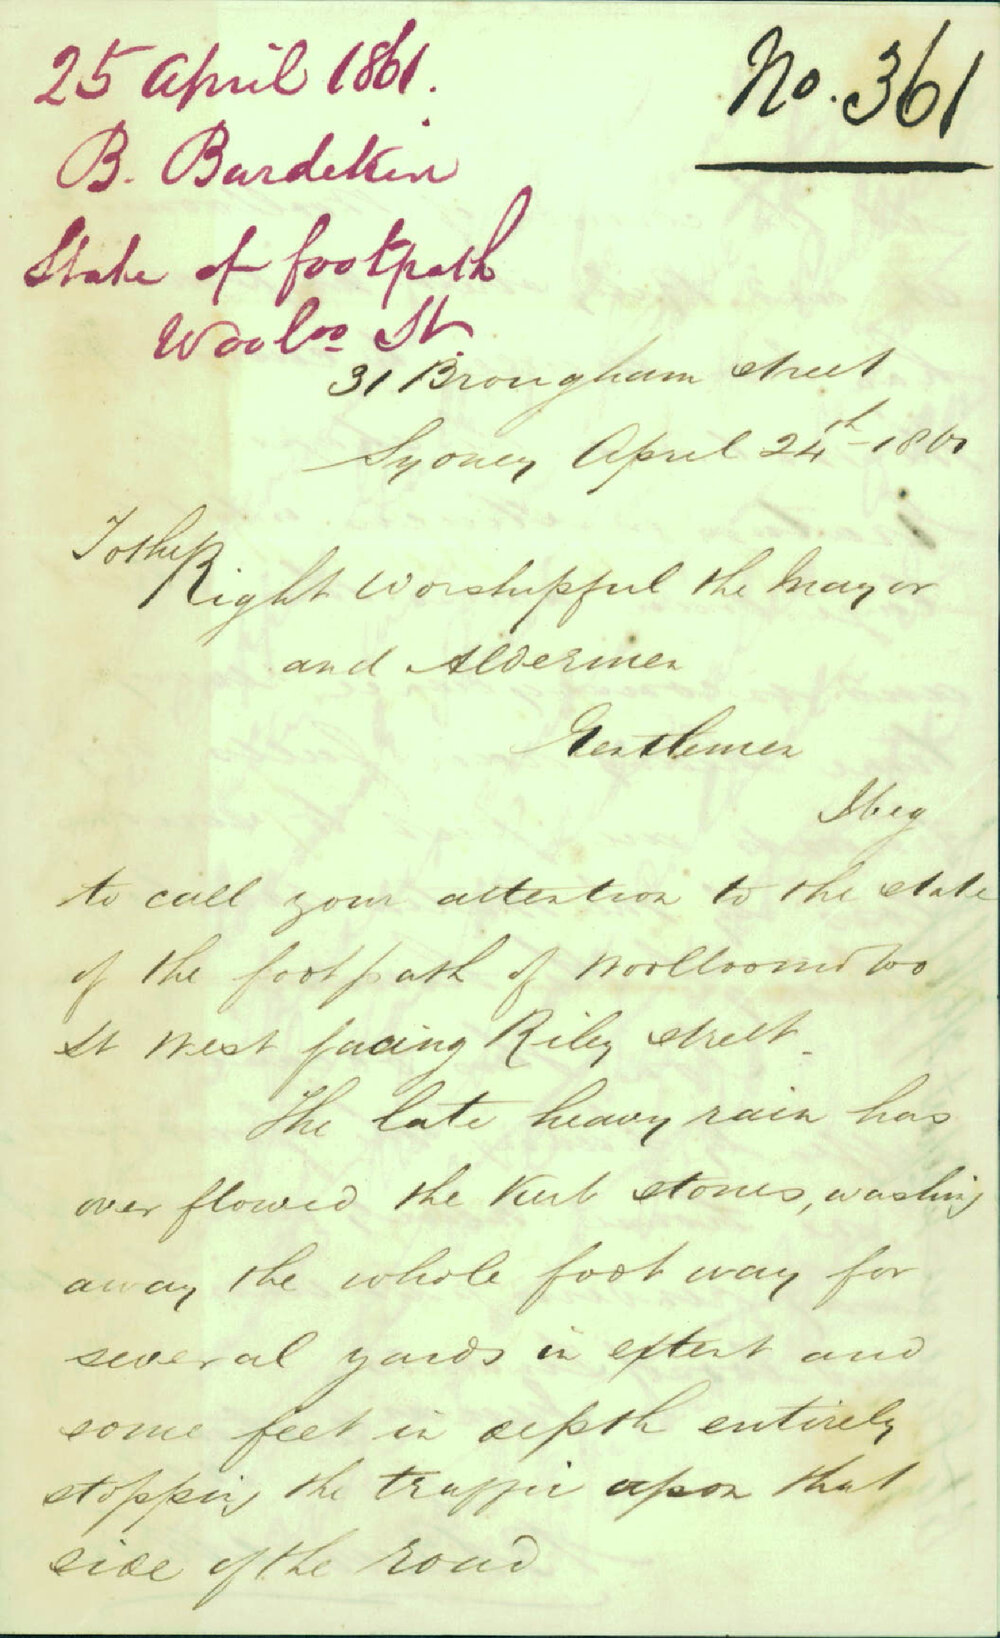 25 April 1861.
No. 361
B. Burdekin
State of footpath
Wooloo St.
31 Brougham street
Sydney April 24th 1861
To the
Right Worshipful the Mayor
and Aldermen
Gentlemen
I beg
to call your attention to the state
of the footpath of Woolloomooloo
St West facing Riley street.
The late heavy rain has
over flowed the Kerb stones, washing
away the whole foot way for
several yards in extent and
some feet in depth entirely
stopping the traffic upon that
side of the road